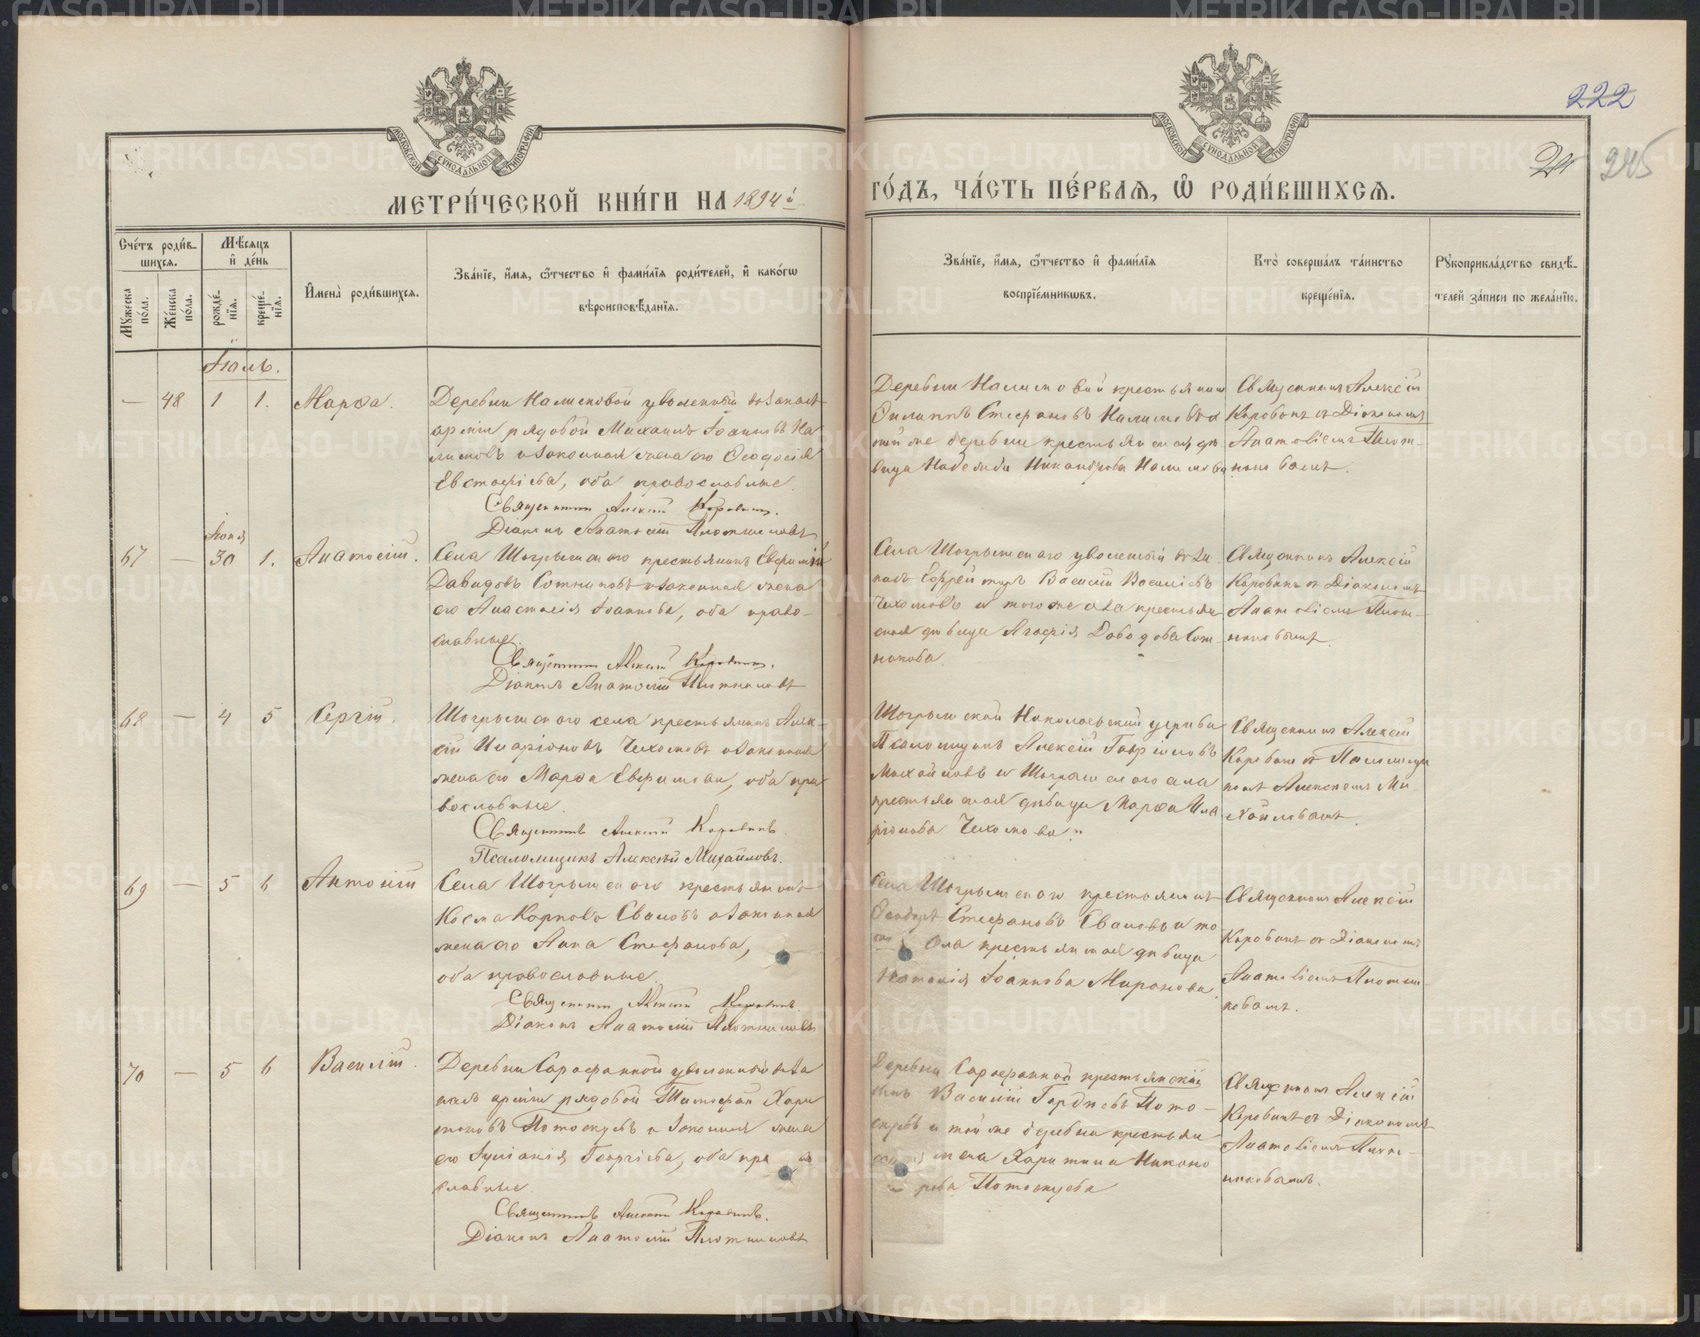 222
245
МЕТРИ́ЧЕСКОЙ КНИ́ГИ НА 1894й
ГО́ДЪ, ЧА́СТЬ ПЕ́РВАЯ, Ѡ РОДИ́ВШИХСЯ.
МОСКОВСКОЙ СѴНОДАЛЬНОЙ ТИПОГРАФІИ
МОСКОВСКОЙ СѴНОДАЛЬНОЙ ТИПОГРАФІИ
Сче́тъ роди́в-
шихся.
Мꙋжеска по́ла.
Же́нска по́ла.
Мѣ́сяцъ
и҆ де́нь
рожде́-
нїя.
креще́-
нїя.
И҆мена̀ роди́вшихся.
Зва́нїе, и҆́мя, ѻ҆́тчество и҆ фами́лїя роди́телей, и҆ како́гѡ
вѣроисповѣ́данїя.
Зва́нїе, и҆́мя, ѻ҆́тчество и҆ фами́лїя
воспрїе́мникѡвъ.
Кто̀ соверша́лъ та́инство
креще́нїя.
Рꙋкоприкла́дство свидѣ́-
телей за́писи по жела́нїю.
Іюль.
— 48 1 1. Марѳа.
Деревни Налимовой уволенный въ запасъ
арміи рядовой Михаилъ Іоанновъ На
лимовъ и законная жена его Ѳеодосія
Евстафіева, оба православные.
Священникъ Алексій Коровинъ.
Діаконъ Анатолій Плотниковъ
Деревни Налимовой крестьянинъ
Филиппъ Стефановъ Налимовъ и
той же деревни крестьянская дѣ
вица Надежда Никандрова Налимова
Священникъ Алексій
Коровинъ съ Діакономъ
Анатоліемъ Плот-
никовымъ.
Іюня
67 — 30 1. Анатолій.
Села Шогрышскаго крестьянинъ Евфимій
Давидовъ Сотниковъ и законная жена
его Анастасія Іоаннова, оба право-
славные.
Священникъ Алексій Коровинъ.
Діаконъ Анатолій Плотниковъ
Села Шогрышскаго уволенный въ за
пасъ Ефрейторъ Василій Васильевъ
Чихомовъ и того же села крестьян
ская дѣвица Агафія Давидова Сот-
никова.
Священникъ Алексій
Коровинъ съ Діакономъ
Анатоліемъ Плот-
никовымъ.
68 — 4 5 Сергій.
Шогрышскаго села крестьянинъ Алек-
сій Иларіоновъ Чихомовъ и законная
жена его Марѳа Евфимова, оба пра
вославные.
Священникъ Алексій Коровинъ.
Псаломщикъ Алексѣй Михайловъ.
Шогрышской Николаевской церкви
Псаломщикъ Алексій Гавріиловъ
Михайловъ и Шогрышскаго села
крестьянская дѣвица Марѳа Ила
ріонова Чихомова.
Священникъ Алексій
Коровинъ съ Псаломщи
комъ Алексѣемъ Ми-
хайловымъ.
69 — 5 6 Антоній
Села Шогрышскаго крестьянинъ
Косма Карповъ Сваловъ и законная
жена его Анна Стефанова,
оба православные.
Священникъ Алексій Коровинъ.
Діаконъ Анатолій Плотниковъ
Села Шогрышскаго крестьянинъ
Ѳеодоръ Стефановъ Сваловъ и то
села крестьянская дѣвица
Наталія Іоаннова Миронова.
Священникъ Алексій
Коровинъ съ Діакономъ
Анатоліемъ Плотни-
ковымъ.
70 — 5 6 Василій.
Деревни Сарафанной уволенный въ за
пасъ арміи рядовой Тимофей Хари
тоновъ Потоскуевъ и законная жена
его Іуліанія Георгіева, оба пра во
славные.
Священникъ Алексій Коровинъ.
Діаконъ Анатолій Плотниковъ
Деревни Сарафанной крестьянскій
сынъ Василій Гордіевъ Пото-
скуевъ и той же деревни крестьян
жена Харитина Никано
рова Потоскуева
Священникъ Алексій
Коровинъ съ Діакономъ
Анатоліемъ Плот-
никовымъ.
METRIKI.GASO-URAL.RU